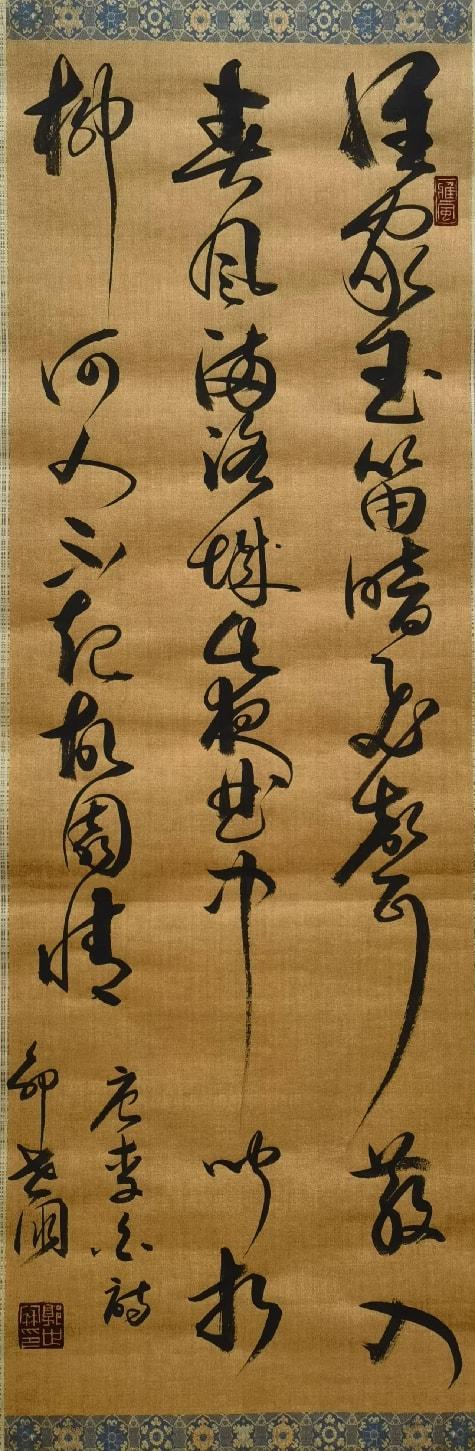 雅風
誰家玉笛暗飛聲散入
春風滿洛城此夜曲中聞折
柳何人不起故園情
唐李白詩